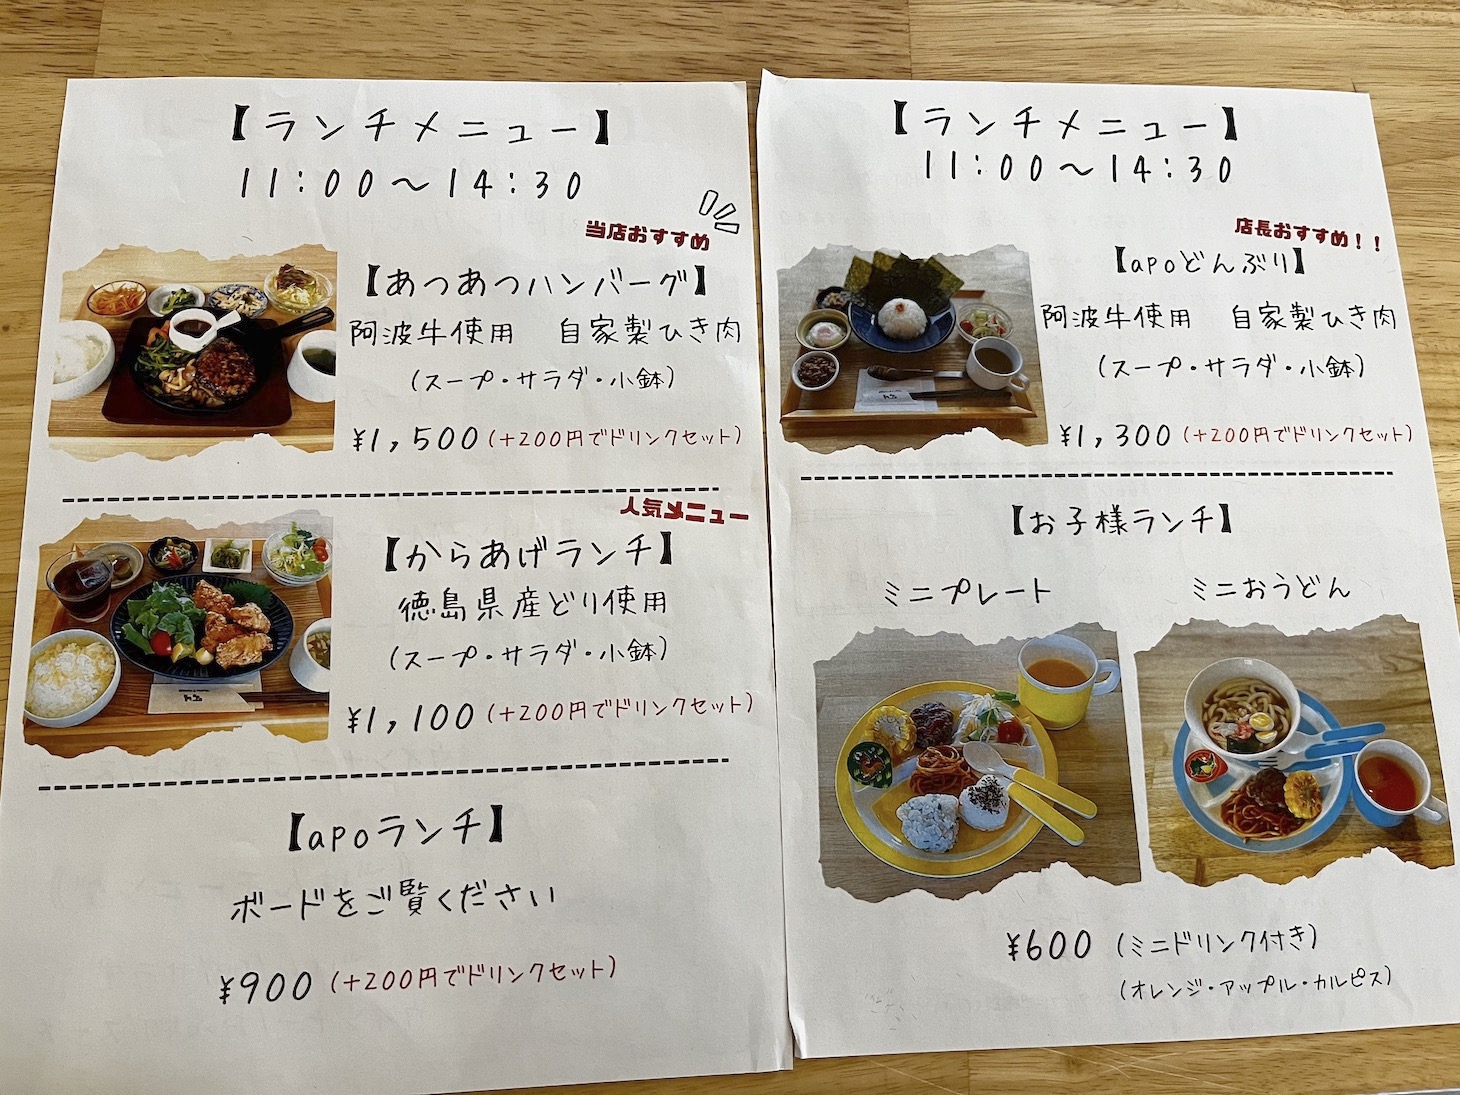 【ランチメニュー】
11:00～14:30
当店おすすめ
【あつあつハンバーグ】
阿波牛使用　自家製ひき肉
(スープ・サラダ・小鉢)
¥1,500(+200円でドリンクセット)
人気メニュー
【からあげランチ】
徳島県産どり使用
(スープ・サラダ・小鉢)
¥1,100(+200円でドリンクセット)
【apoランチ】
ボードをご覧ください
¥900(+200円でドリンクセット)
【ランチメニュー】
11:00～14:30
店長おすすめ！！
【apoどんぶり】
阿波牛使用　自家製ひき肉
(スープ・サラダ・小鉢)
¥1,300(+200円でドリンクセット)
【お子様ランチ】
ミニプレート　ミニおうどん
¥600(ミニドリンク付き)
(オレンジ・アップル・カルピス)